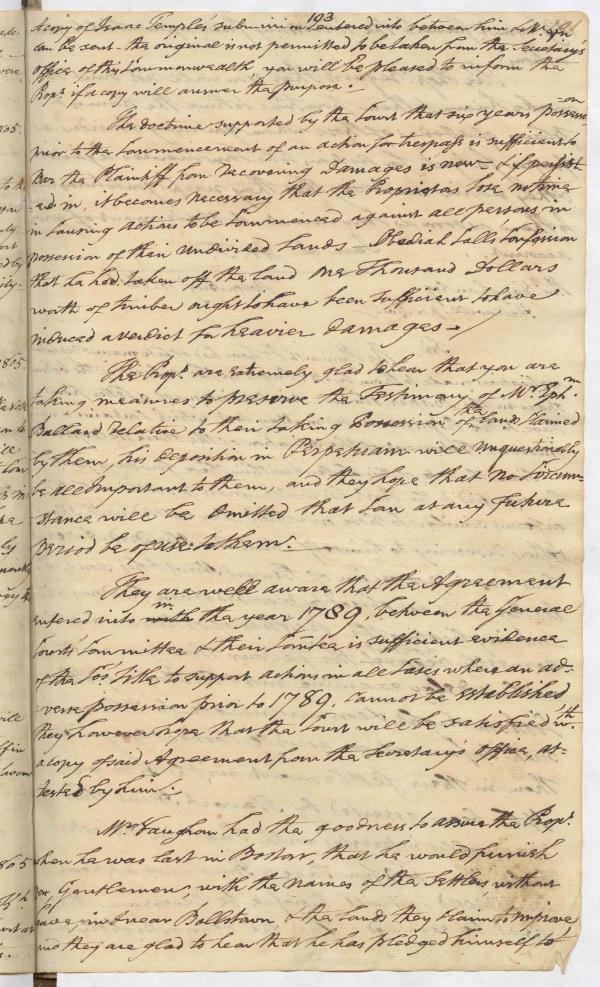 193
A copy of Isaac Temple's submission entered into between him & Mr
can be sent - the original is not permitted to be taken from the Secretary's
office of this Commonwealth you will be pleased to inform the
Props. if a copy will answer the purpose.
The doctrine supported by the Court that six years possess-ion
prior to the Commencement of an action for trespass is sufficient to
Bar the Plaintiff from recovering Damages is new - & if persist-
-ed in, it becomes necessary that the Proprietors lose no time
in causing actions to be Commenced against all persons in
possession of their undivided Lands - Obediah Calls Confession
that he had taken off the land One Thousand Dollars
worth of timber ought to have been sufficient to have
induced a verdict for heavier Damages -
The Props. are extremely glad to hear that you are
taking measures to preserve the Testimony of Mr. Ephm.
Ballard relative to their taking Possession of the Lands claimed
by them, his deposition in Perpetuam will unquestionably
be all important to them, and they hope that no Circum-
stance will be Omitted that can at any future
period be of use to them.
They are well aware that the Agreement
entered into in with the year 1789, between the General
Courts Committee & their Comtee is sufficient evidence
of the Cos. title to support actions in all Cases where an ad-
verse possession prior to 1789, Cannot be established
they however hope that the Court will be satisfied wth.
a copy of said Agreement from the Secretary's Office, at-
tested by him.
Mr Vaughan had the goodness to assure the Props.
when he was last in Boston, that he would furnish
you Gentlemen, with the names of the Settlers without
leave, in & near Ballstown & the lands they claim to improve
and they are glad to hear that he has pledged himself to